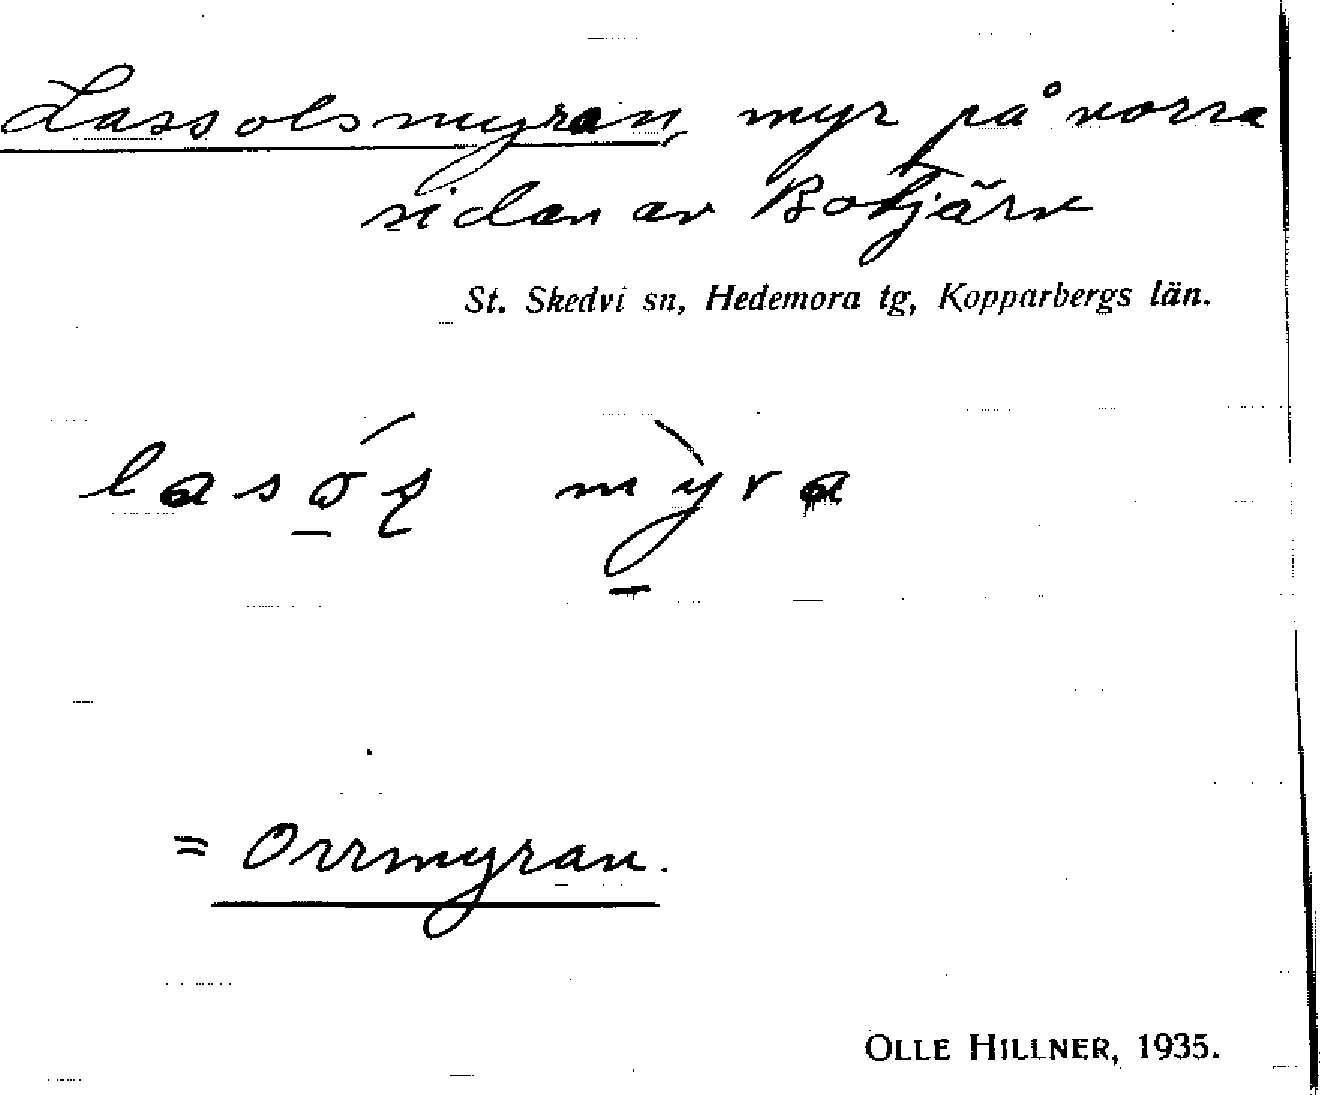 Lassolsmyran, myr på norra
sidan av Botjärn
St. Skedvi sn, Hedemora tg, Kopparbergs län.
= Orrmyran.
OLLE HILLNER, 1935.